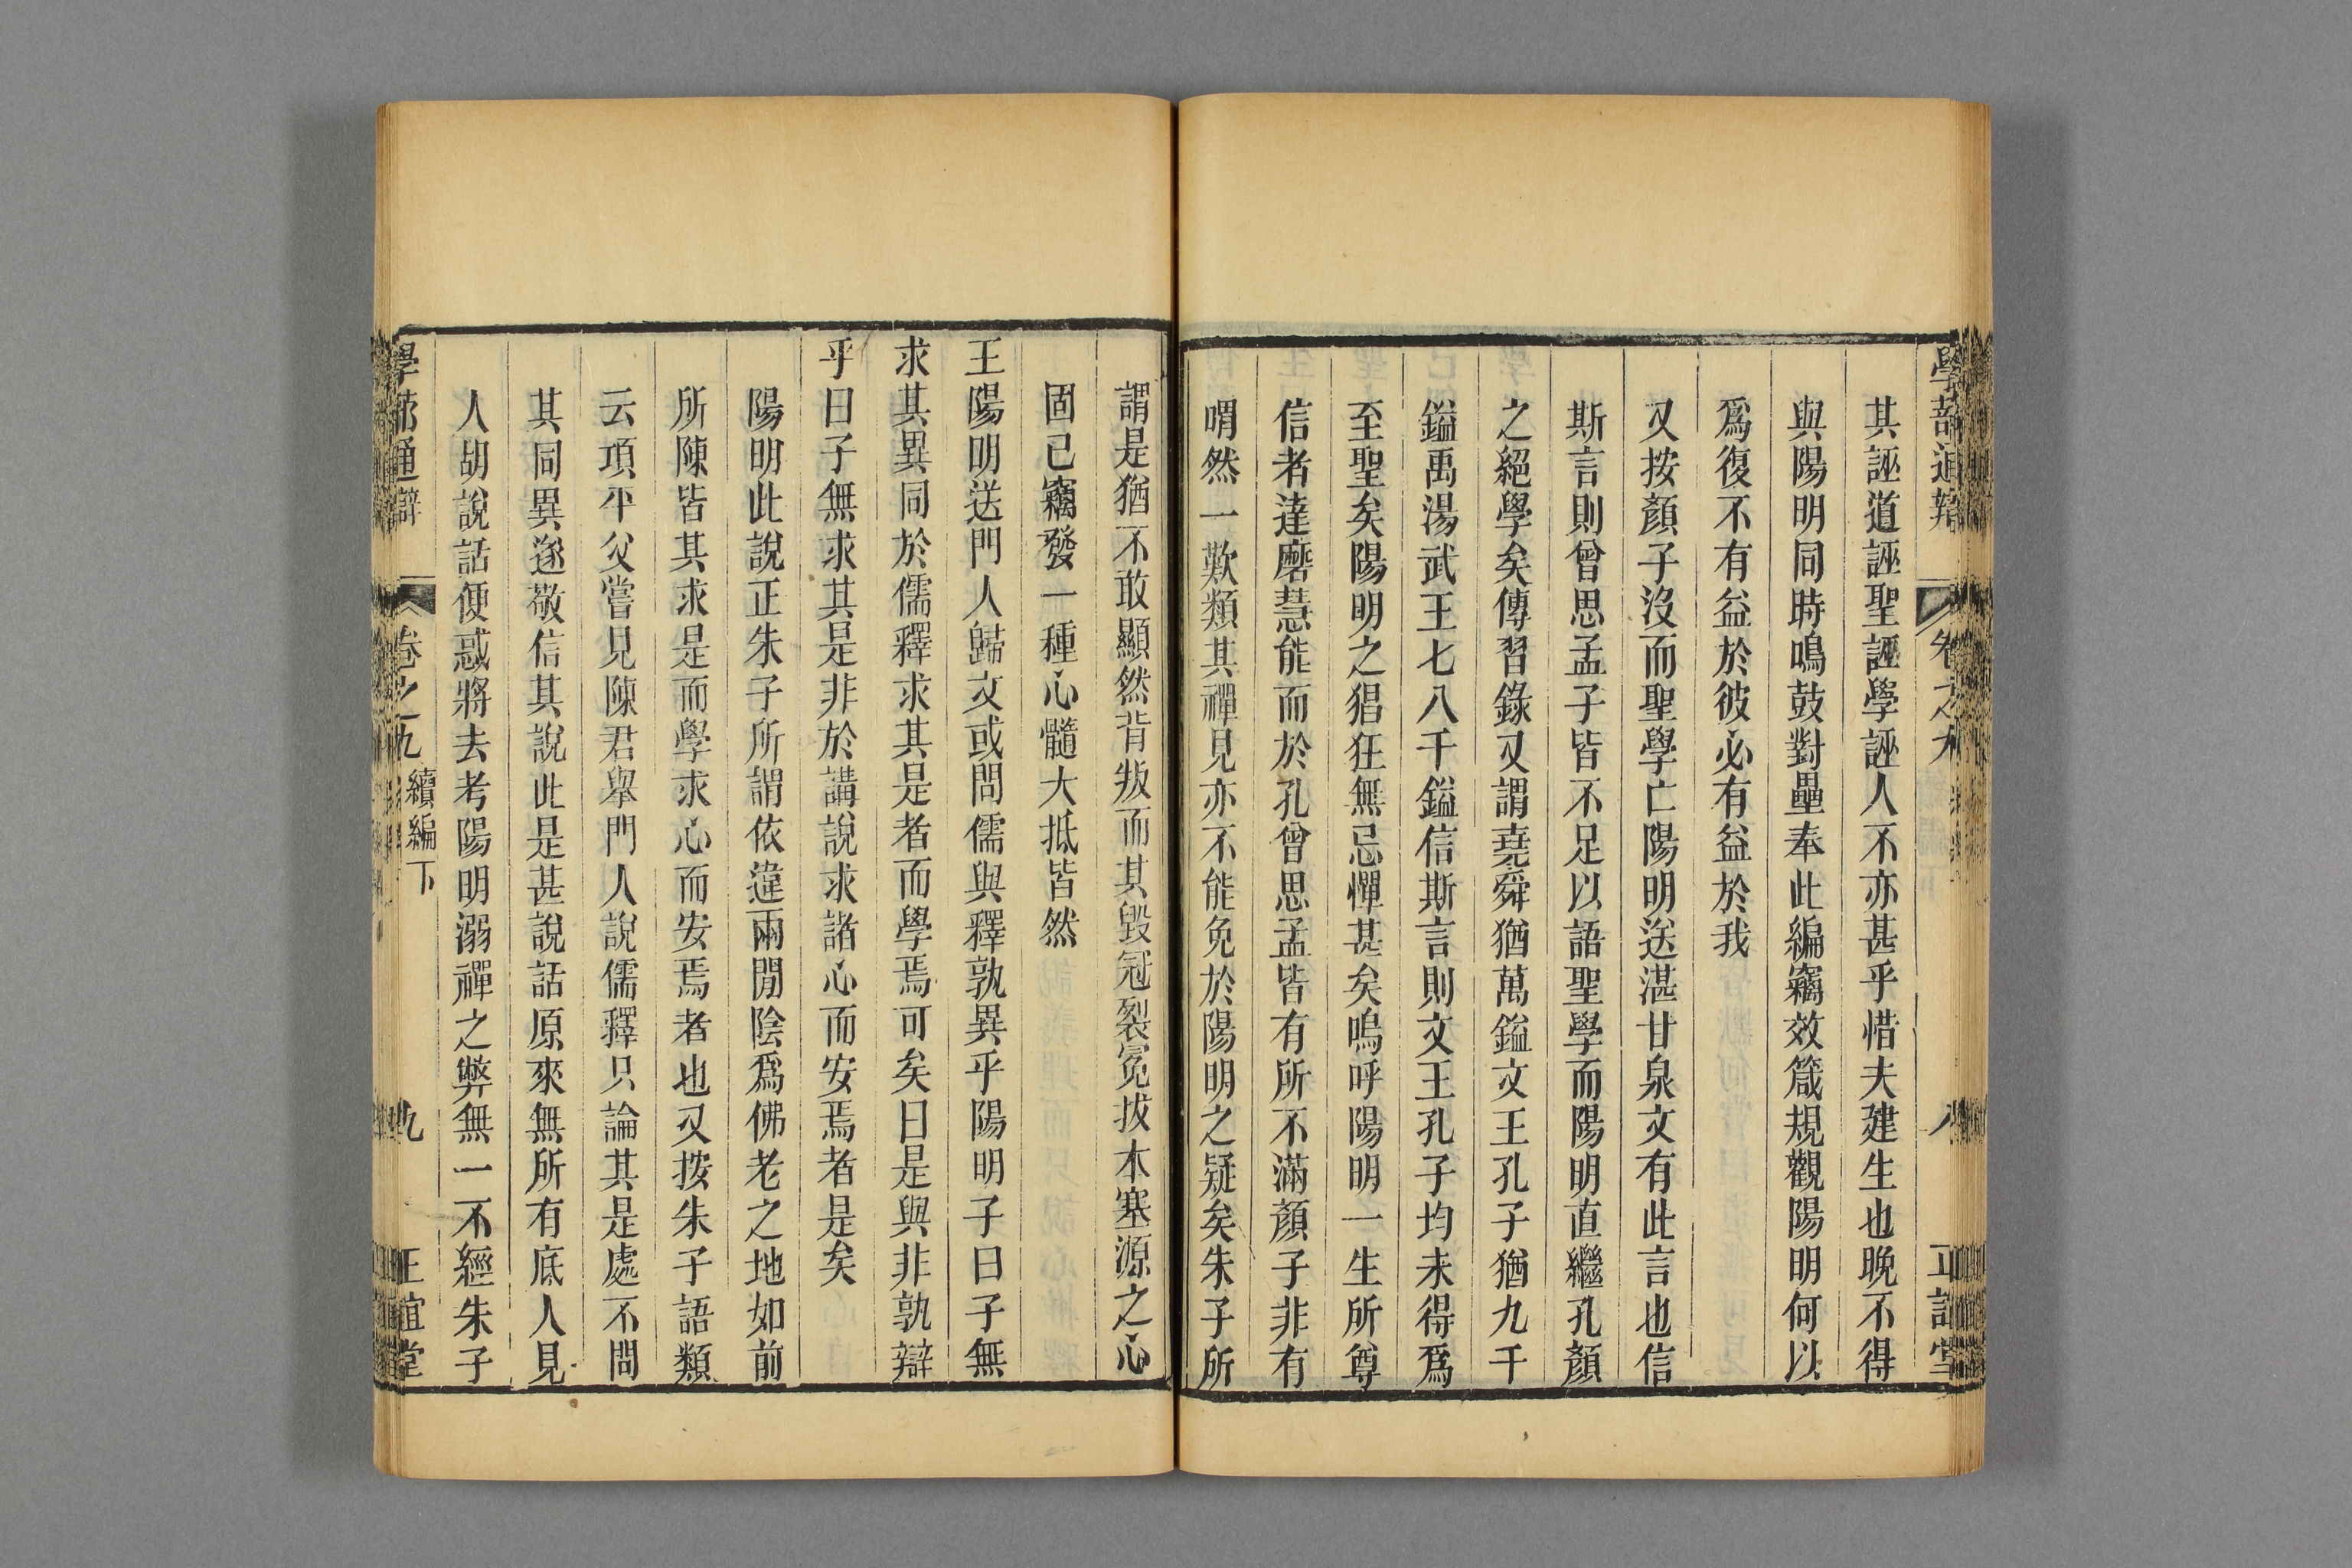 學蔀通辯 卷之九 八 正誼堂
其誣道誣聖誣學誣人不亦甚乎惜夫建生也晚不得
與陽明同時鳴鼓對壘奉此編竊效箴規觀陽明何以
爲復不有益於彼必有益於我
又按顏子沒而聖學亡陽明送湛甘泉文有此言也信
斯言則曾思孟子皆不足以語聖學而陽明直繼孔顏
之絕學矣傳習錄又謂堯舜猶萬鎰文王孔子猶九千
鎰禹湯武王七八千鎰信斯言則文王孔子均未得爲
至聖矣陽明之猖狂無忌憚甚矣嗚呼陽明一生所尊
信者達磨慧能而於孔曾思孟皆有所不滿顏子非有
喟然一歎類其禪見亦不能免於陽明之疑矣朱子所
謂是猶不敢顯然背叛而其毀冠裂冕拔本塞源之心
固已竊發一種心髓大抵皆然
王陽明送門人歸文或問儒與釋孰異乎陽明子曰子無
求其異同於儒釋求其是者而學焉可矣曰是與非孰辯
乎曰子無求其是非於講說求諸心而安焉者是矣
陽明此說正朱子所謂依違兩閒陰爲佛老之地如前
所陳皆其求是而學求心而安焉者也又按朱子語類
云項平父嘗見陳君舉門人說儒釋只論其是處不問
其同異遂敬信其說此是甚說話原來無所有底人見
人胡說話便惑將去考陽明溺禪之弊無一不經朱子
學蔀通辯 卷之九 續編下 九 正誼堂